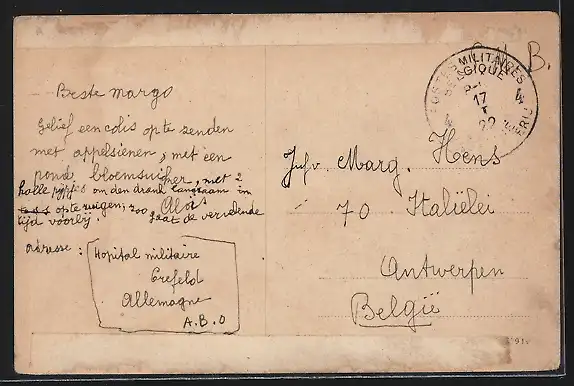 S.M.B.
POSTES MILITAIRES
BELGIQUE
17
I
22
4
Beste margo
Gelief een colis op te zenden
met appelsienen, met een
pond bloemsuiker, met 2
holle pijpjes om den drank langzaam in
op te zuigen; zoo gaat de vervelende
tijd voorbij. Aloïs
adresse :
Hopital militaire
Crefeld
Allemagne
A.B.O
Jufv. Marg. Hens
70 Italiëlei
Antwerpen
België